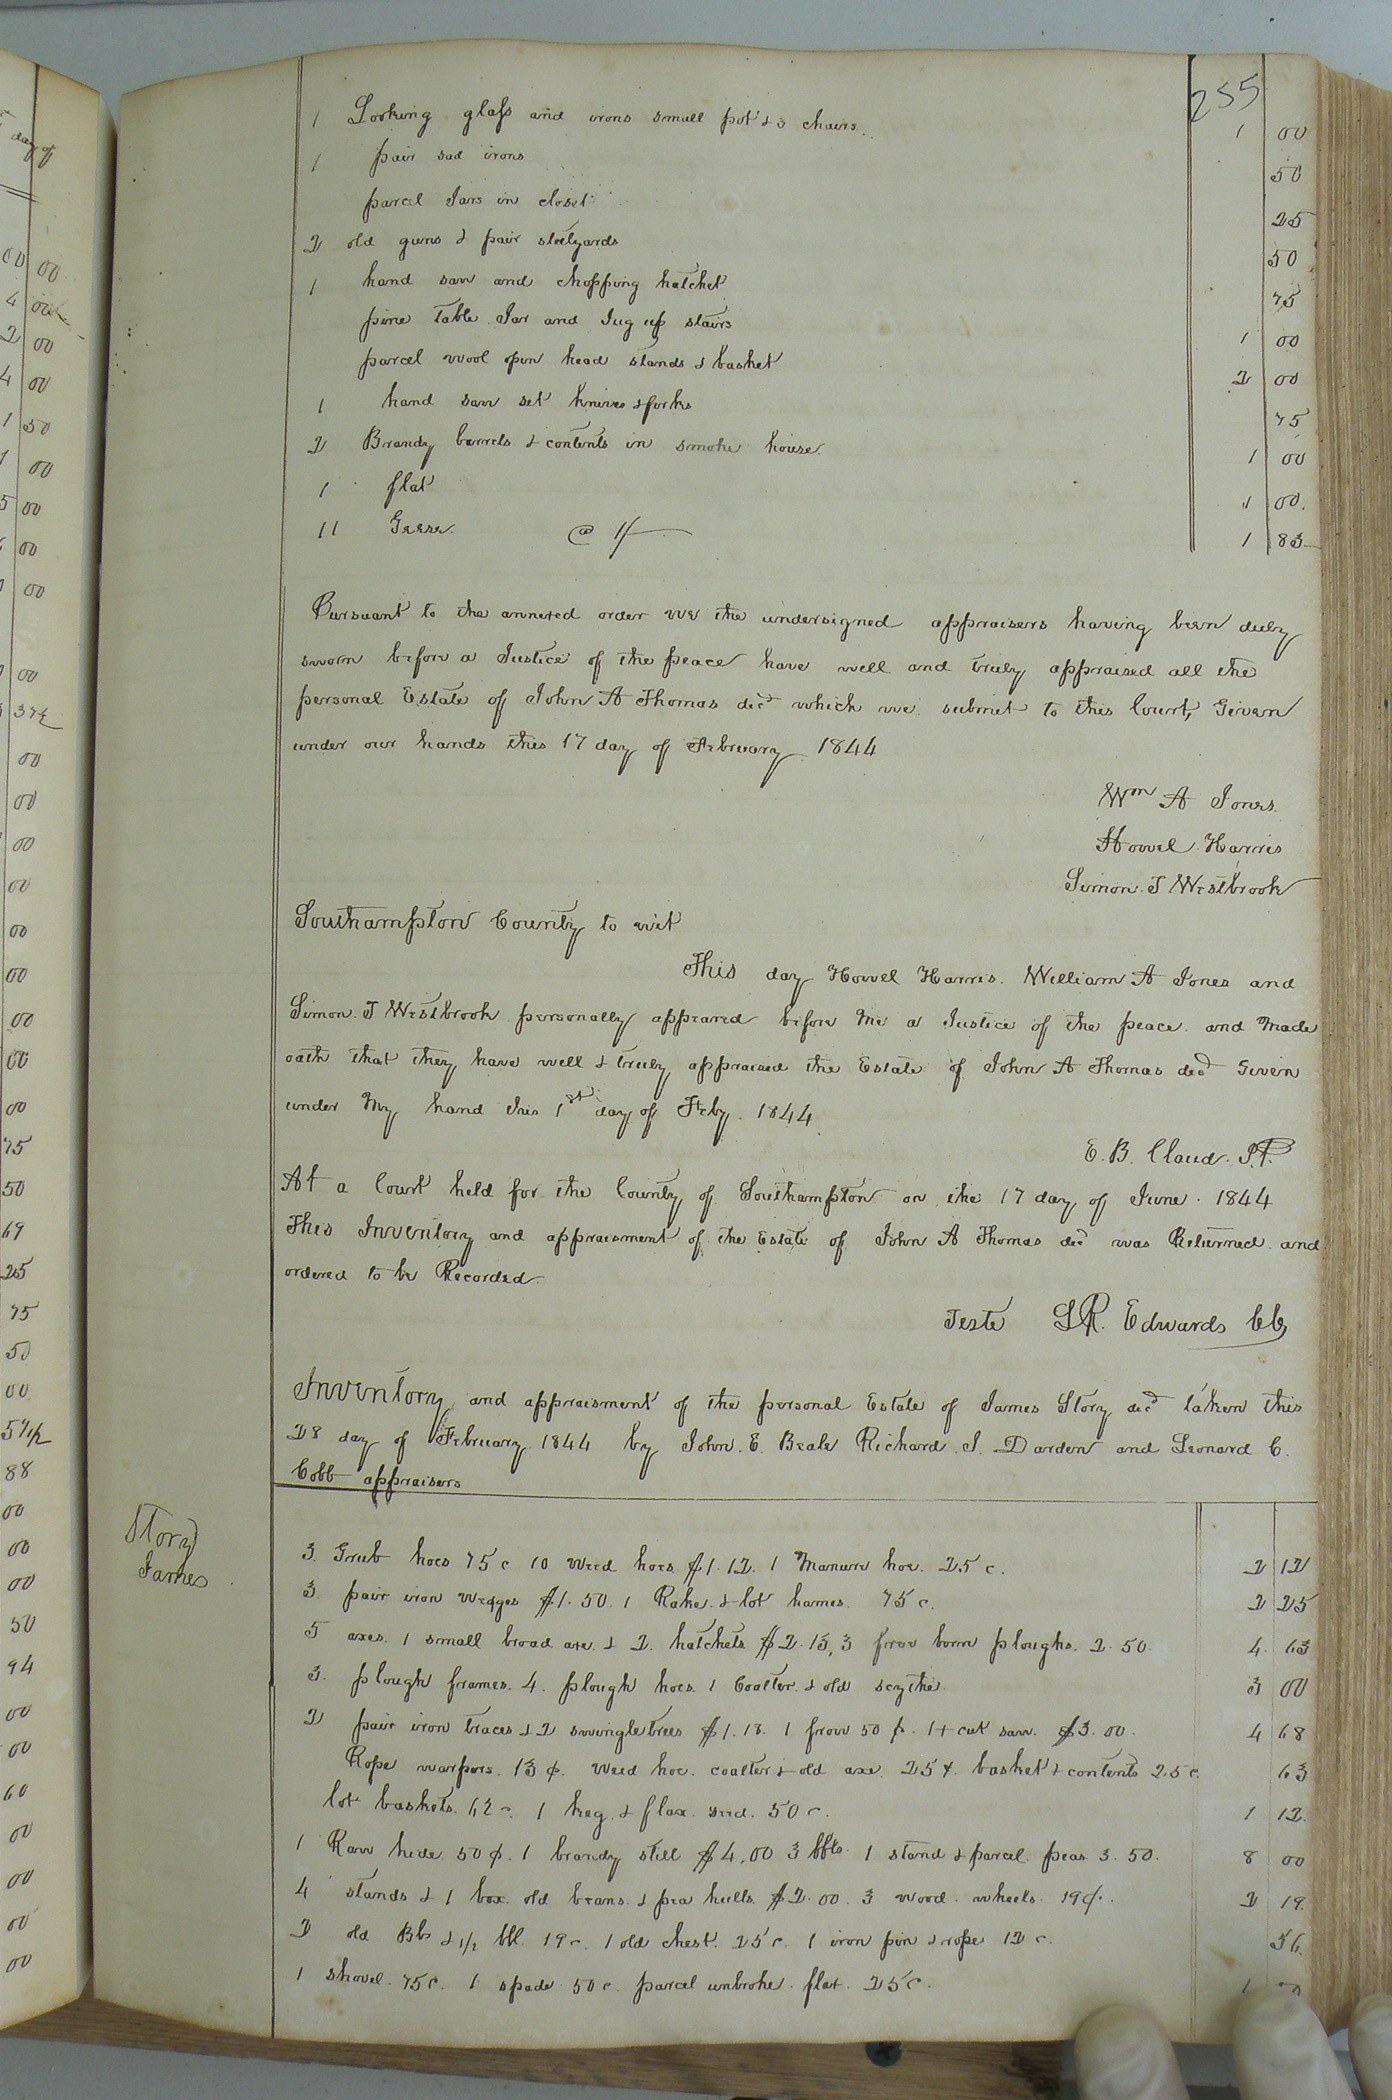 255
1 Looking glass and irons small pot & 3 chairs. 1 00
1 pair sad irons 50
parcel Jars in closet 25
2 old guns & pair stelyards 50
1 hand saw and chopping hatchet 75
pine table Jar and Jug up stairs 1 00
parcel wool open head stands & basket 2 00
1 hand saw set knives & forks 75
2 Brandy barrels & contents in smoke house. 1 00
1 flat 1 00.
11 Geese. @ 1/ 1 83
Pursuant to the annexed order we the undersigned appraisers having been duly
sworn before a Justice of the peace have well and truly appraised all the
personal Estate of John A Thomas decd which we submit to this Court, Given
under our hands this 17 day of February 1844
Wm A Jones.
Howel Harris
Simon. T Westbrook
Southampton County to wit
This day Howel Harris. William A Jones and
Simon. T Westbrook personally appeared before me a Justice of the peace. and made
oath that they have well & truly appraised the Estate of John A Thomas decd Given
under my hand this 1st day of Feby. 1844
E. B. Claud. J.P.
At a Court held for the County of Southampton on the 17 day of June. 1844
This Inventory and appraisment of the Estate of John A Thomas decd was Returned and
ordered to be Recorded.
Teste L R. Edwards Clk
Inventory and appraisment of the personal Estate of James Story decd taken this
28 day of February 1844 by John. E. Beale Richard. J. Darden and Leonard C.
Cobb appraisers
Story
James
3. Grub hoes 75 c 10 Weed hoes $1.12. 1 Manure hoe. 25 c. 2 12
3. pair iron Wedges $1.50. 1 Rake. & lot hames. 75 c. 2 25
5 axes. 1 small broad axe. & 2. hatchets $2.13, 3 frow born ploughs. 2.50. 4. 63
3. plough frames. 4. plough hoes. 1 Coalter. & old scythe. 3 00
2 pair iron traces & 2 swingletrees $1.18. 1 frow 50 ¢. 1 + cut saw. $3.00. 4 68
Rope warpers. 13 ¢. Weed hoe. coalter & old axe. 25 ¢. basket & contents 25 c. 63
lot baskets. 62 c. 1 keg. & flax. seed. 50 c. 1 12.
1 Raw hide. 50 ¢. 1 brandy still $4.00 3 bbls. 1 stand & parcel. peas. 3.50. 8 00
4 stands & 1 box. old beans. & pea hulls. $2.00. 3 wood. wheels. 19¢. 2 19.
2 old Bbs & 1/2 bbl. 19 c. 1 old chest. 25 c. 1 iron pin & rope 12 c. 56.
1 shovel. 75 c. 1 spade 50 c. parcel unbroke. flax. 25 c. 1
day of
00 00
4 00
2 00
4 00
1 50
1 00
5 00
00
00
00
37½
00
00
00
00
00
00
00
00
00
75
50
69
25
75
50
00
57½
88
00
00
00
50
94
00
00
60
00
00
00
00